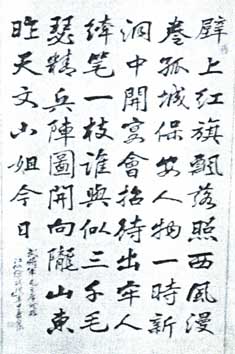 壁上红旗飄落照西風漫
卷孤城保安人物一時新
洞中開宴會招待出牢人
纖笔一枝誰與似三千毛
瑟精兵陣圖開向隴山東
昨天文小姐今日
武將軍